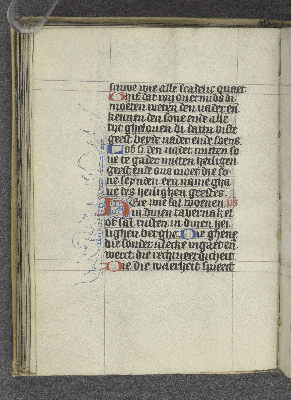 sture
Op dat wy overmids di
moeten weten den vader en
kennen den sone ende alle
tyt ghelouen di sam viste
geest beyde vader ende soens
Lof si den vader mitten so
ne te gader mitten heilighen
geest ende ons moet die so
ne seynden een name gha
ue des heilighen geestes
Here wie sal woenen
in dinen tabernakel
of sal rusten in dinen hei
lighen berghe Die ghene
die sonder vlecke ingaet en
werct die rechtueerdicheit
Die die waerheit spreect